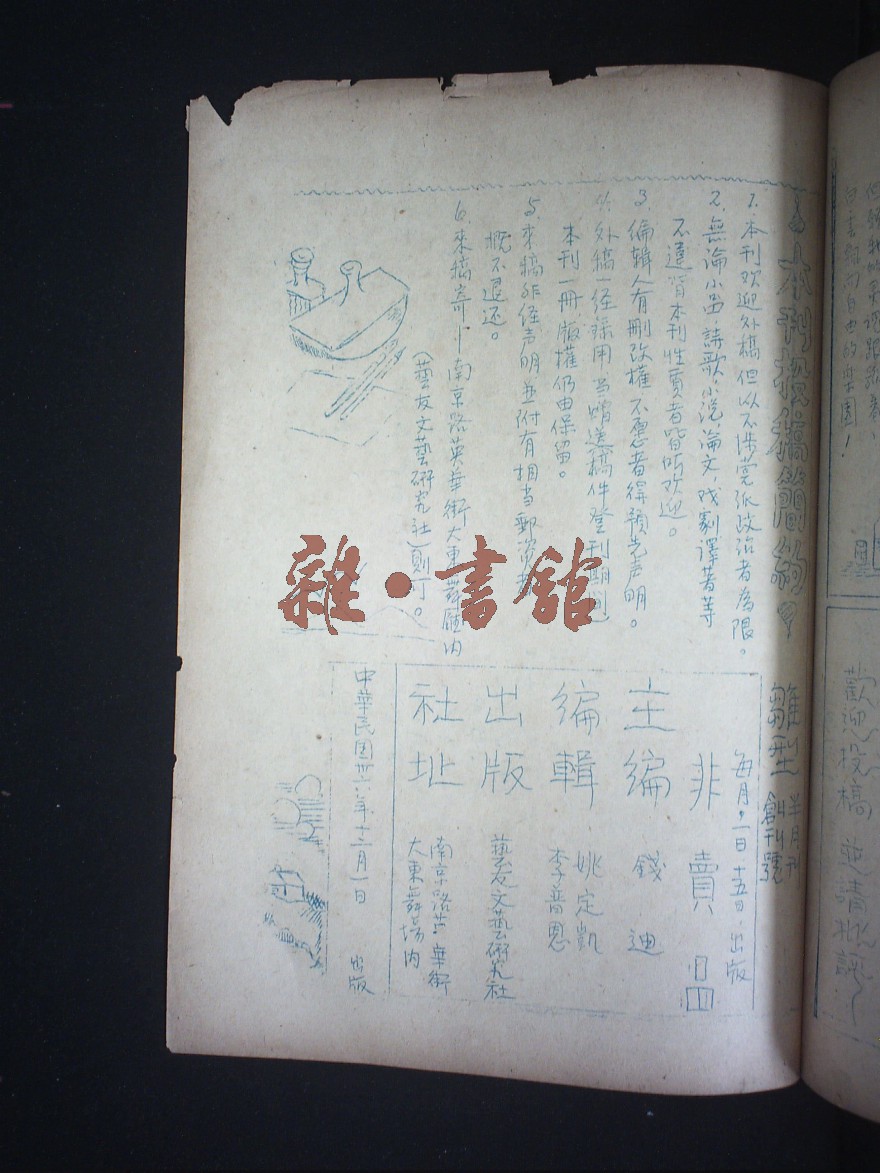 本刊投稿簡約
1. 本刊欢迎外稿但以不涉党派政治者為限。
2. 無論小品，詩歌，小说，論文，戏劇譯著等
不違背本刊性質者皆所欢迎。
3. 编輯人有刪改權不愿者得預先声明。
4. 外稿一经採用当贈送稿件登刊期
本刊一冊版權仍由保留。
5. 来稿非经声明並附有相当郵資
概不退还。
6. 來稿寄——南京路英華街大東舞廳内
(藝友文藝研究社)則可。
雛型 半月刊 創刊號
每月，一日，十五日，出版
非賣品
主编 錢迪
编輯 姚定凱
李普恩
出版 藝友文藝研究社
社址 南京路英華街
大東舞場内
中華民国卅六年十二月一日 出版
雜·書館
歡迎投稿 並請批評
白書歸向自由的樂園！